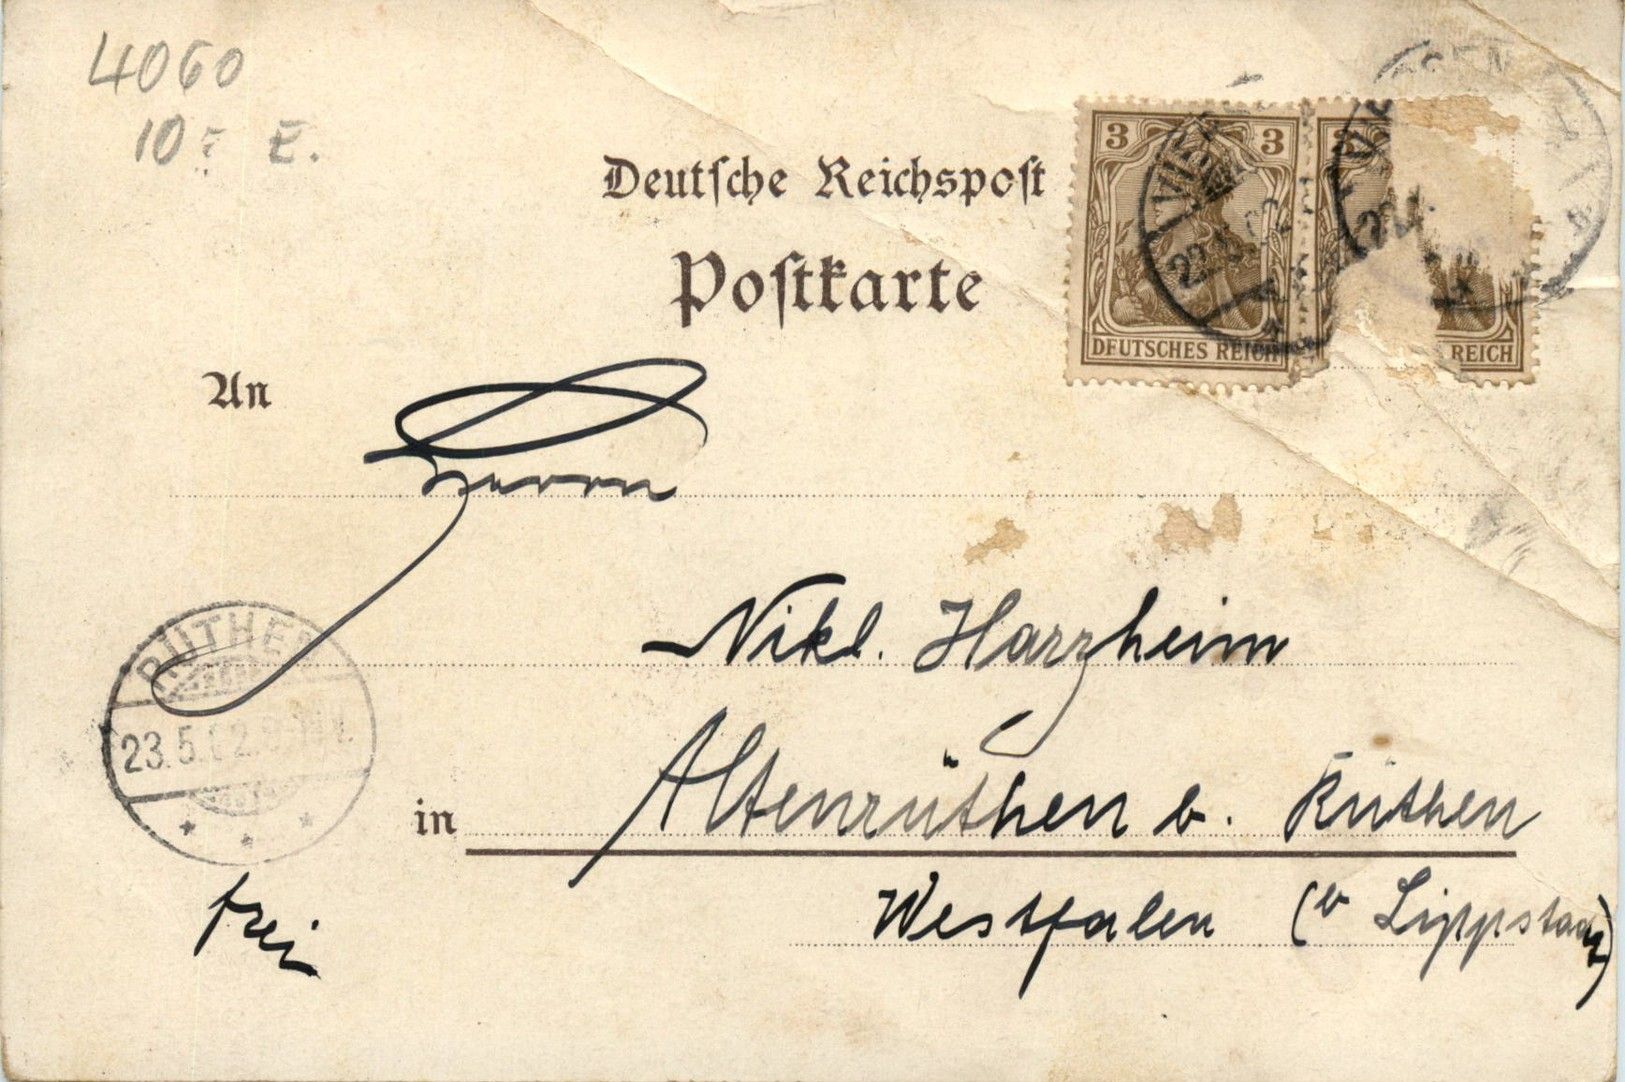 4060
10 E.
Deutsche Reichspost
Postkarte
3 3 3
DEUTSCHES REICH REICH
An
Herrn
Nikl. Harzheim
RÜTHEN
23.5.02
in Altenrüthen b. Rüthen
Westfalen (b Lippstadt)
frei